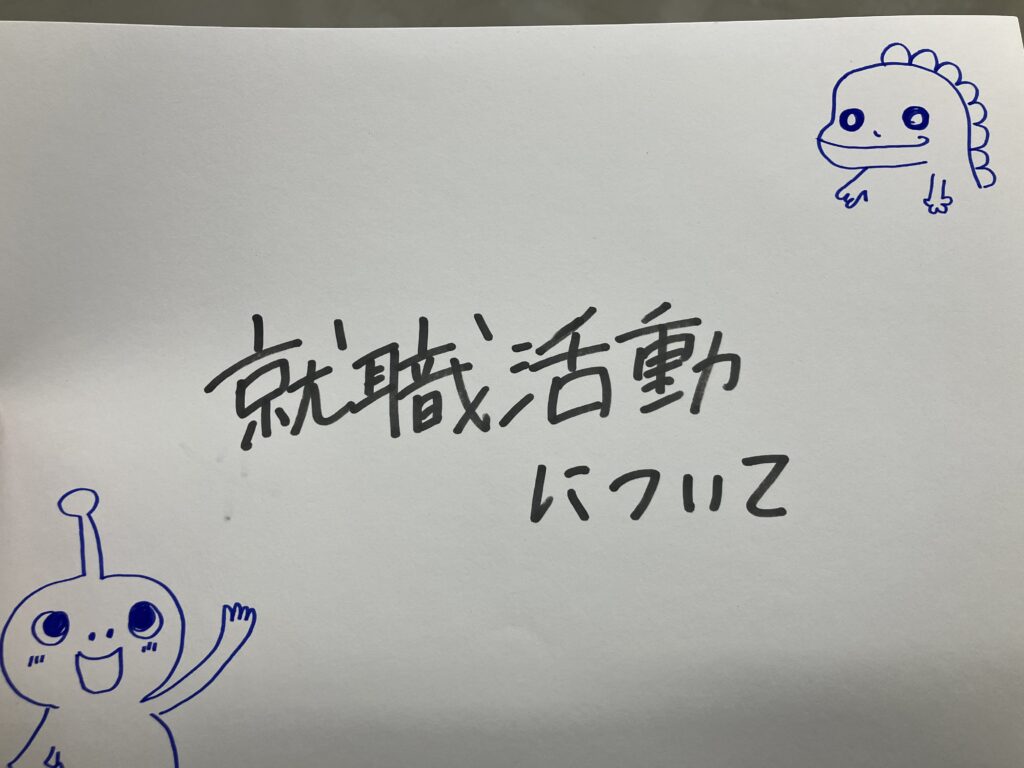 就職活動
について